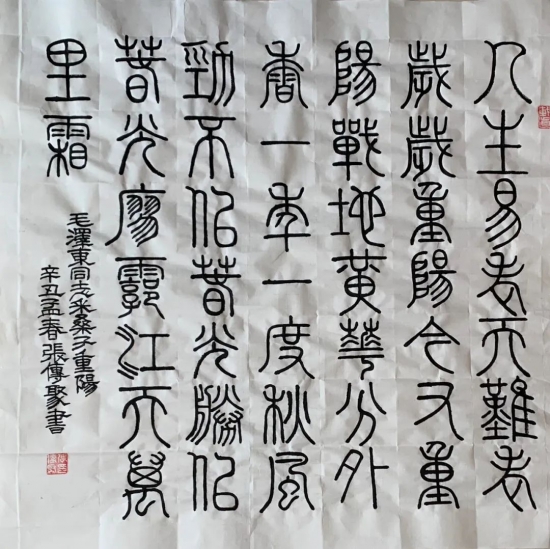 人生易老天難老
歲歲重陽今又重
陽戰地黃華分外
香一年一度秋風
勁不似春光勝似
春光廖霩江天萬
里霜
毛澤東同志采桑子重陽
辛丑孟春張傳聚書